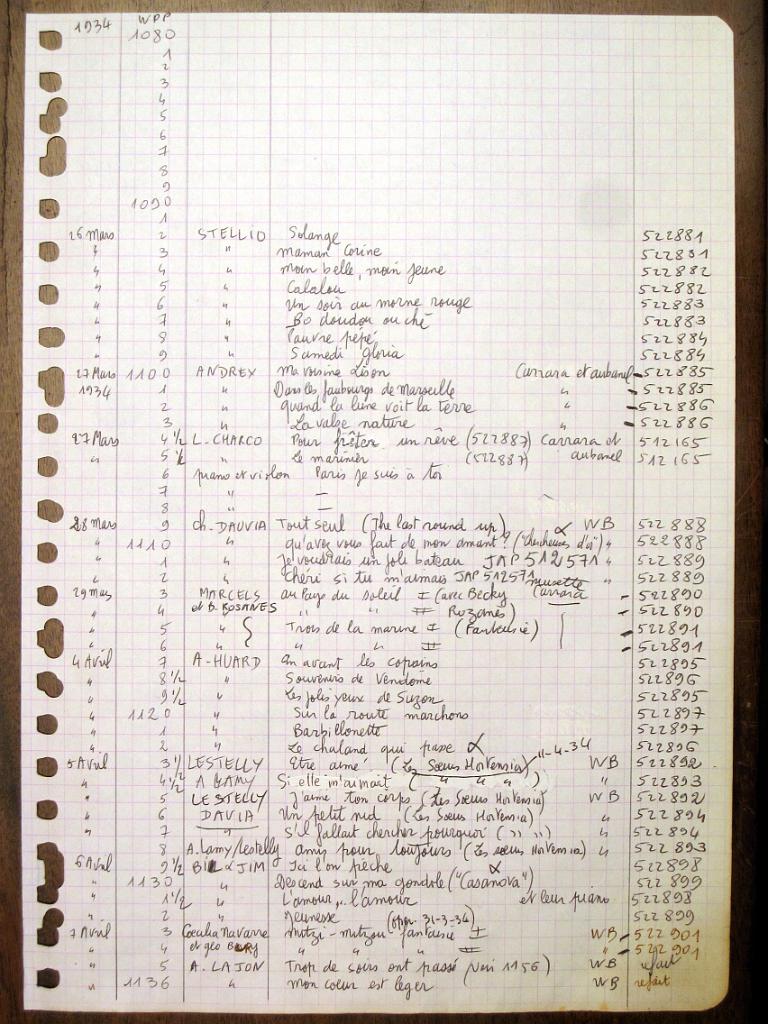 1934 WPP
1080
1
2
3
4
5
6
7
8
9
1090
1
26 Mars 2 STELLIO Solange 522881
" 3 " maman Corine 522881
" 4 " moin belle, moin jeune 522882
" 5 " Calalou 522882
" 6 " Un soir au morne rouge 522883
" 7 " Bo doudou ou ché 522883
" 8 " Pauvre pépé 522884
" 9 " Samedi gloria 522884
27 Mars 1100 ANDREX ma voisine Lison Carrara et aubanel 522885
1934 1 " Dans les faubourgs de Marseille " 522885
2 " quand la lune voit la terre " 522886
3 " La valse nature " 522886
27 Mars 4 1/2 L. CHARCO Pour frêter un rêve (522887) Carrara et 512165
" 5 1/2 " Le marinier (522887) aubanel 512165
6 piano et violon Paris je suis à toi
7 " —
8 " —
28 mars 9 ch. DAUVIA Tout seul (The last round up) α WB 522888
" 1110 " qu'avez vous fait de mon amant? ("chercheuses d'or") " 522888
" 1 " Je voudrais un joli bateau JAP 512571 " 522889
" 2 " chéri si tu m'aimais JAP 512571 musette " 522889
29 mars 3 MARCELS au Pays du soleil I (avec Becky Carrara - 522890
" 4 et B. ROSANES " " II Rozanès) - 522890
" 5 " Trois de la marine I (Fantaisie) - 522891
" 6 " " II - 522891
4 Avril 7 A. HUARD En avant les copains 522895
" 8 1/2 " Souvenirs de Vendome 522896
" 9 1/2 " Les jolis yeux de Suzon 522895
" 1120 " Sur la route marchons 522897
" 1 " Barbillonette 522897
" 2 " Le chaland qui passe α 522896
5 Avril 3 1/2 LESTELLY Etre aimé (Les Soeurs Hortensia) 11-4-34 WB 522892
" 4 1/2 A LAMY Si elle m'aimait (" " ") " 522893
" 5 LESTELLY J'aime ton corps (Les Soeurs Hortensia) WB 522892
" 6 DAVIA Un petit nid (Les Soeurs Hortensia) " 522894
" 7 " S'il fallait chercher pourquoi (" ") " 522894
8 A. Lamy/Lestelly amis pour toujours (Les soeurs Hortensia) " 522893
6 Avril 9 1/2 BIL & JIM Ici l'on pêche α 522898
" 1130 " Descend sur ma gondole ("Casanova") 522899
" 1 1/2 " L'amour, l'amour et leur piano 522898
" 2 " Jeunesse (opér. 31-3-34) 522899
7 Avril 3 Coecilia Navarre Mitzi-mitzou fantaisie I WB - 522901
" 4 et géo Bury " " " II " - 522901
" 5 A. LAJON Trop de soirs ont passé (voir 1156) WB refait
" 1136 " mon coeur est léger WB refait